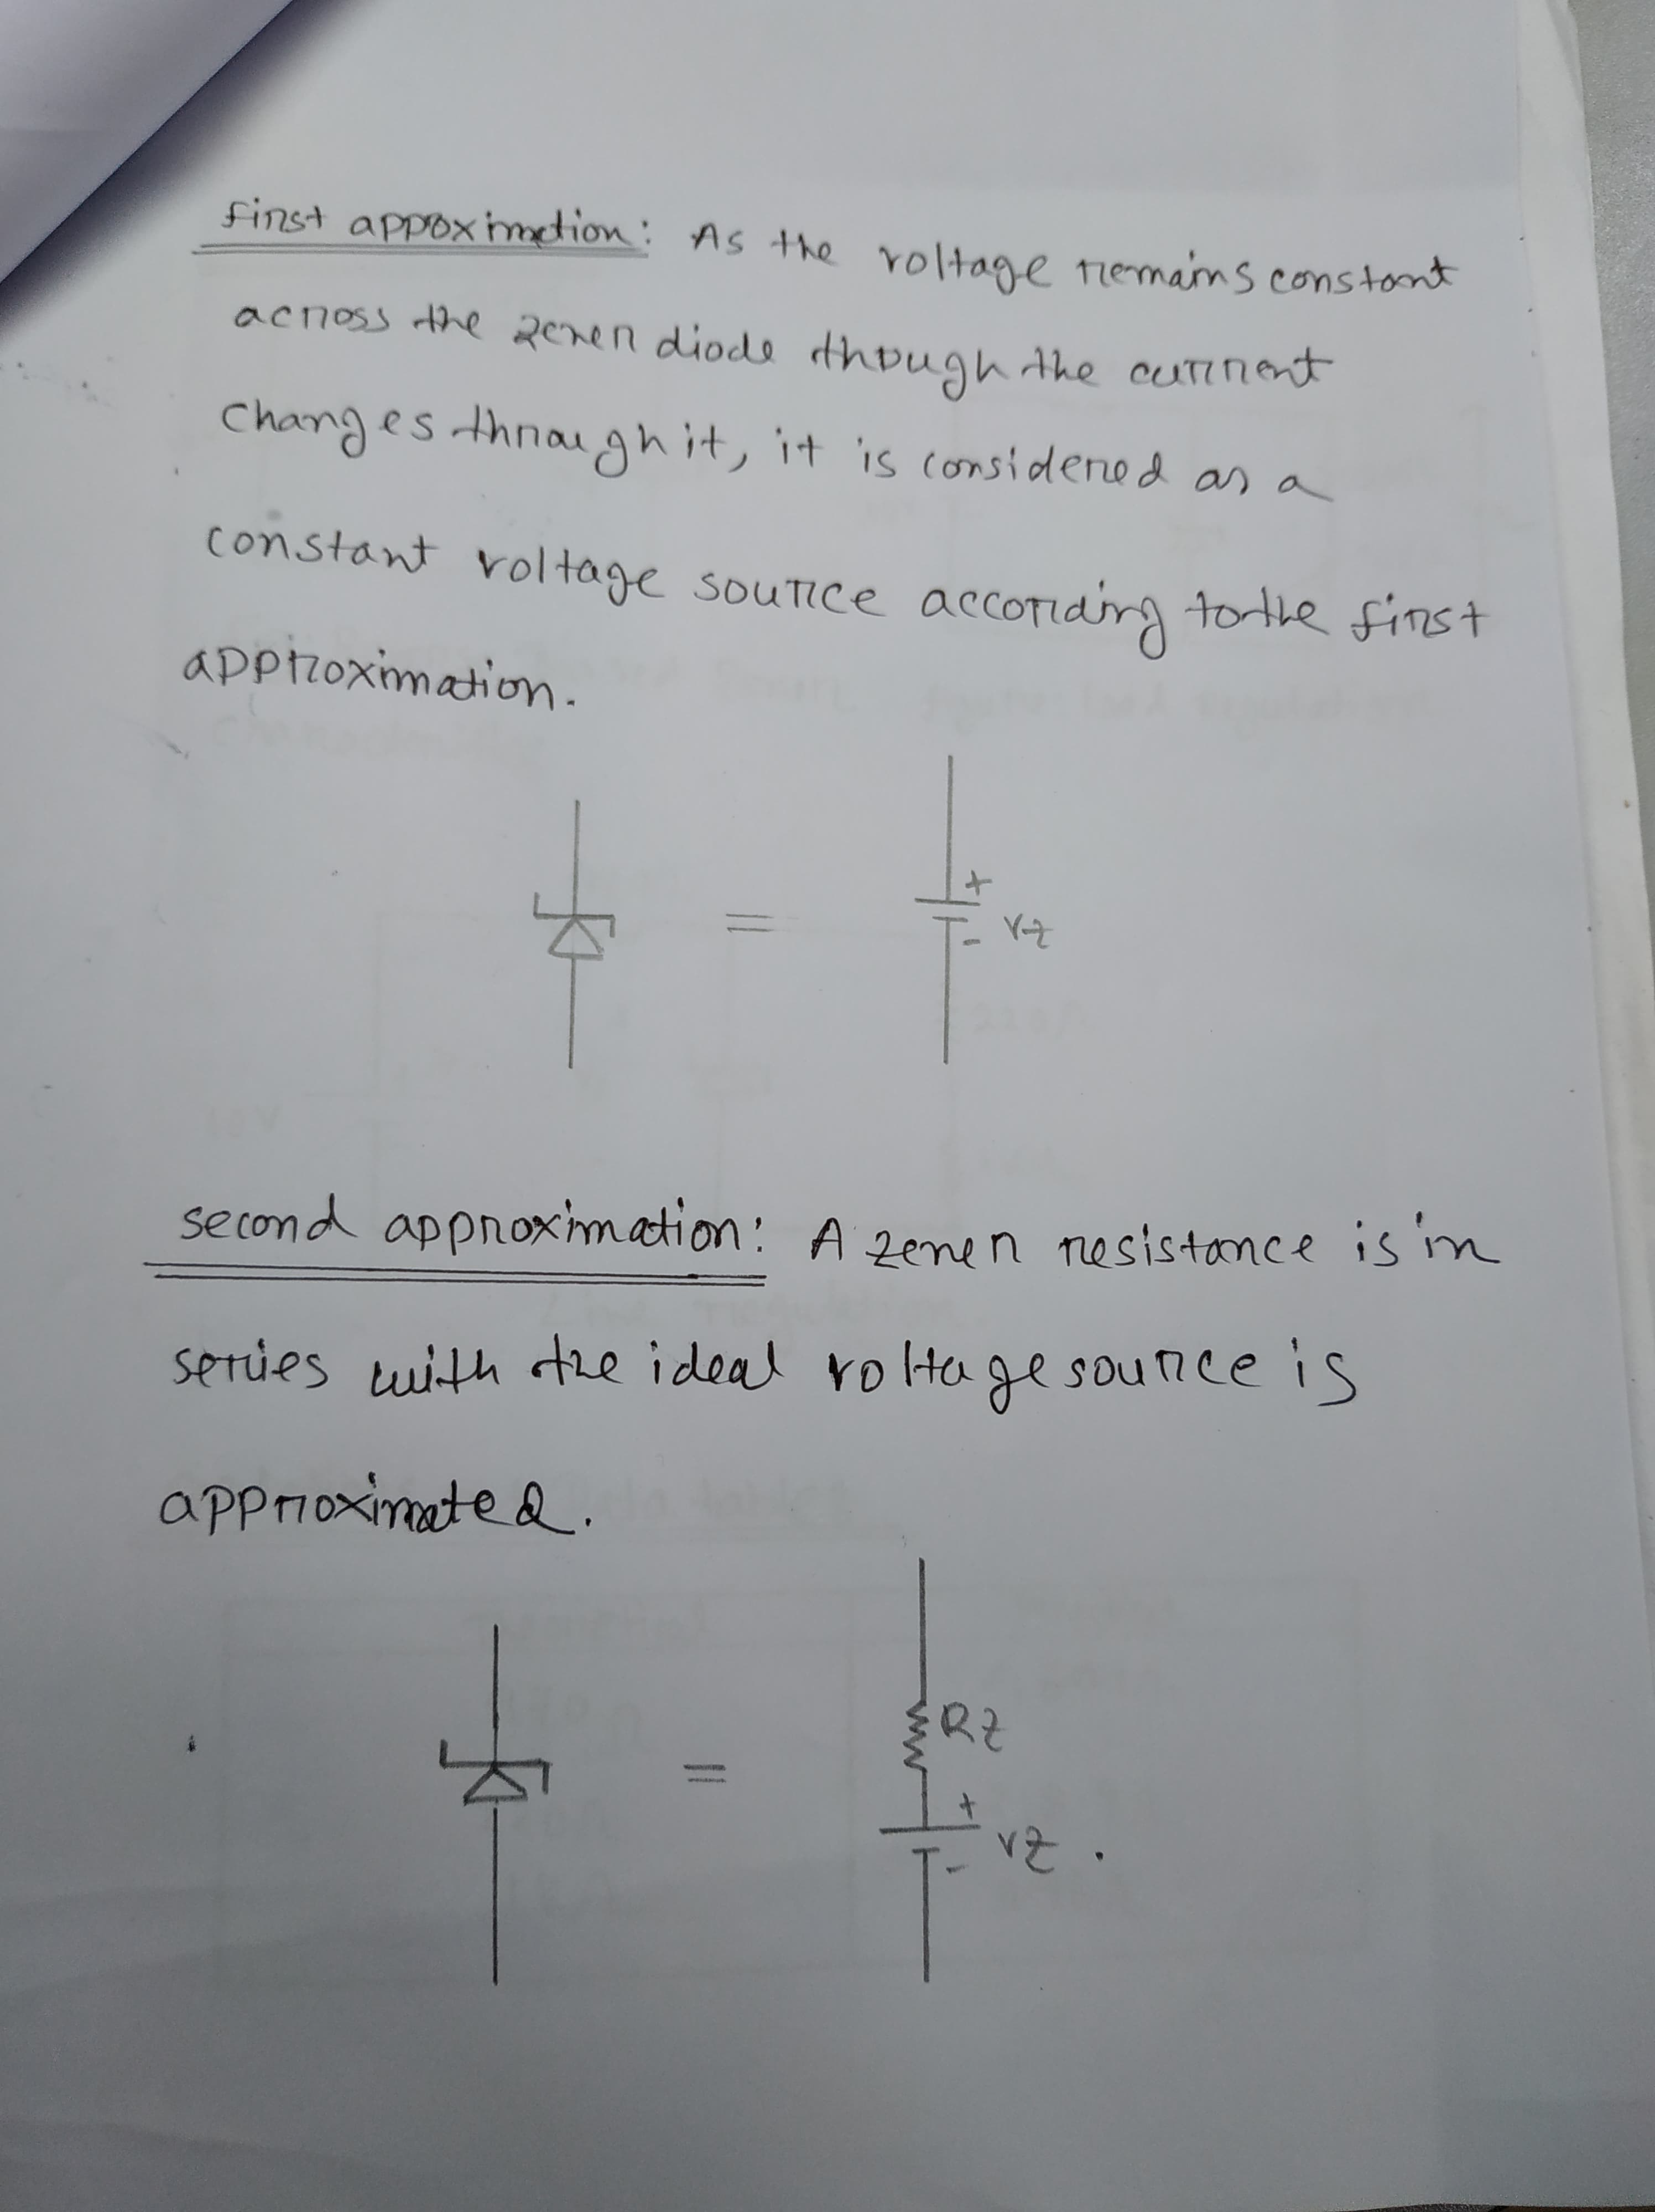 first appoximation: As the voltage remains constant
across the zener diode though the current
changes through it, it is considered as a
constant voltage source according to the first
approximation.
=
+
- VZ
second approximation: A zener resistance is in
series with the ideal voltage source is
approximated.
RZ
=
+
- VZ.